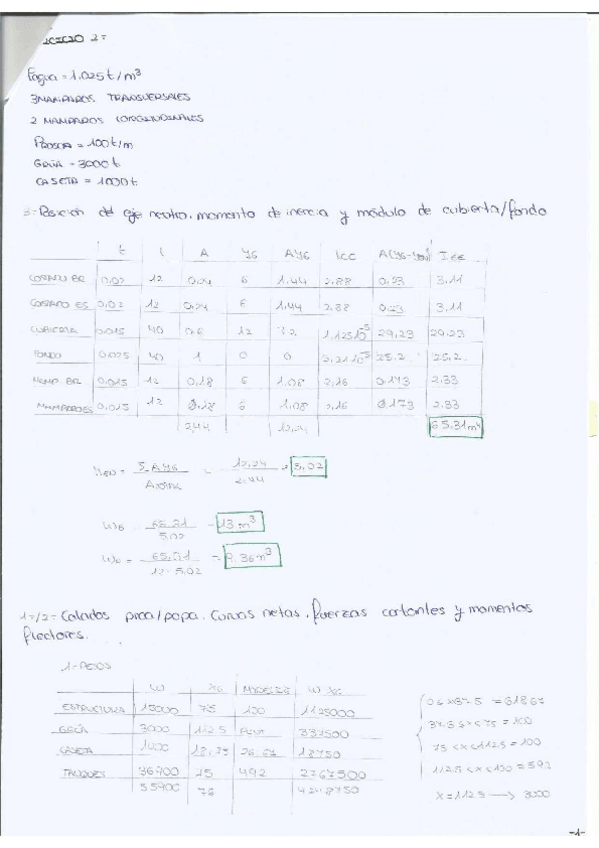 2=
ρagua = 1.025 t/m³
3 MAMPAROS TRANSVERSALES
2 MAMPAROS LONGITUDINALES
= 100 t/m
GRÚA = 3000 t
CASETA = 1000 t
3- Posición del eje neutro, momento de inercia y módulo de cubierta/fondo
t l A YG AYG ICC I
COSTADO BR 0.02 12 0.24 6 1.44 2.88 0.23 3.11
COSTADO ES 0.02 12 0.24 6 1.44 2.88 0.23 3.11
CUBIERTA 0.015 40 0.6 12 7.2 29.23 29.23
FONDO 0.025 40 1 0 0 25.2 25.2
MAMP BR 0.015 12 0.18 6 1.08 2.16 0.173 2.33
MAMPARO ES 0.015 12 0.18 6 1.08 2.16 0.173 2.33
2.44 12.24 65.31 m⁴
= 12.24 / 2.44 = 5.02
= 65.31 / 5.02 = 13 m³
= 65.31 / 12-5.02 = 9.36 m³
1=/2= Calados proa/popa. Curvas netas, fuerzas cortantes y momentos
flectores.
1- PESOS
W XG W XG
ESTRUCTURA 15000 75 100 1125000
GRÚA 3000 112.5 337500
CASETA 1000 18.75 26.67 18750
TANQUES 36900 75 492 2767500
55900 76 4248750
75 < x < 112.5 = 100
112.5 < x < 150 = 592
x = 112.5 → 3000
-1-